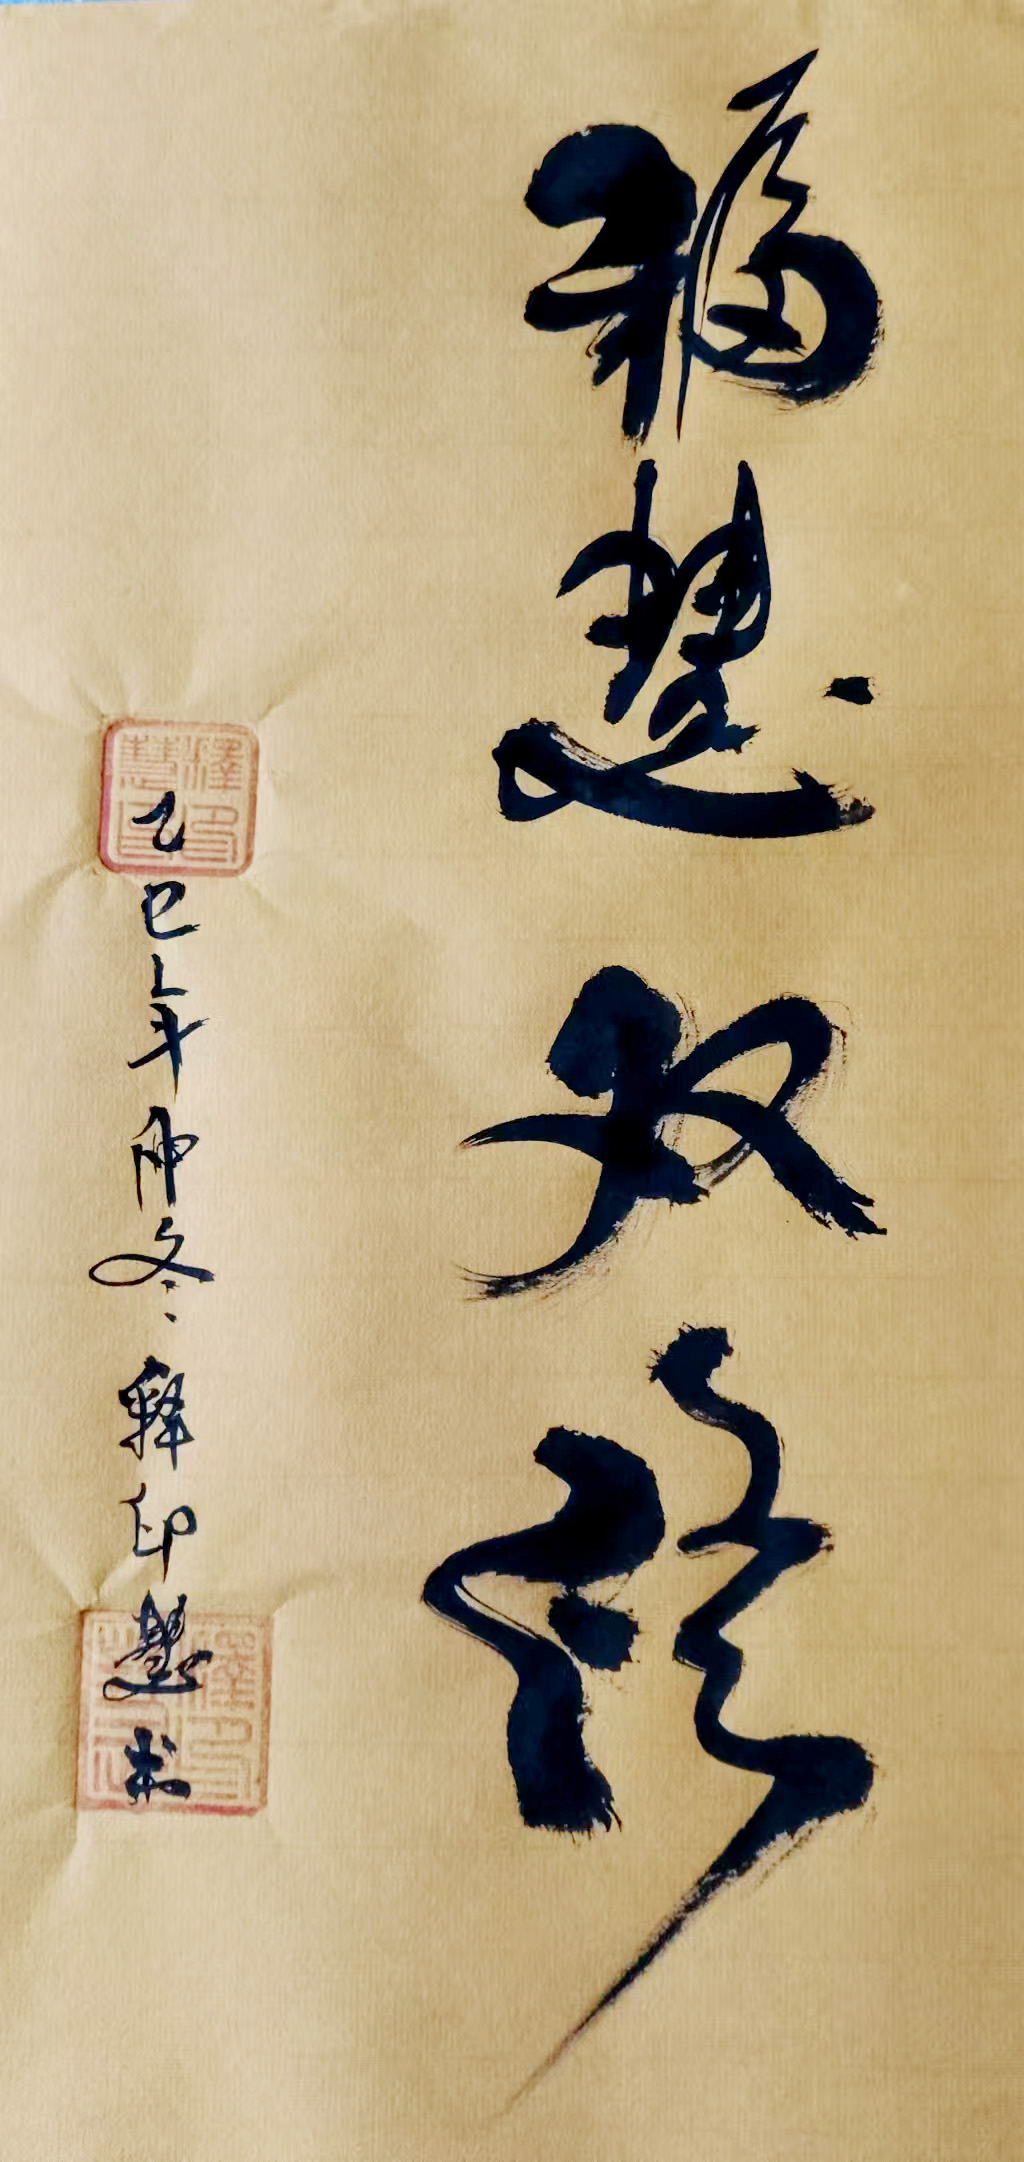 福慧双修
乙巳年仲冬释印慧书
釋印慧印
釋印慧印